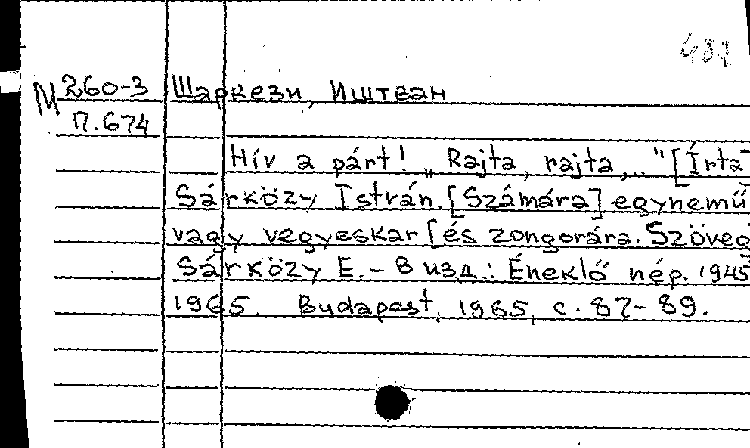 М 260-3 Шаркези, Иштван
П.674
Hív a párt! „Rajta, rajta,.." [Írta
Sárközy István. [Számára] egynemű
vagy vegyeskar [és zongorára. Szöveg
Sárközy E. – В изд.: Éneklő nép. 1945
1965. Budapest, 1965, с. 87–89.